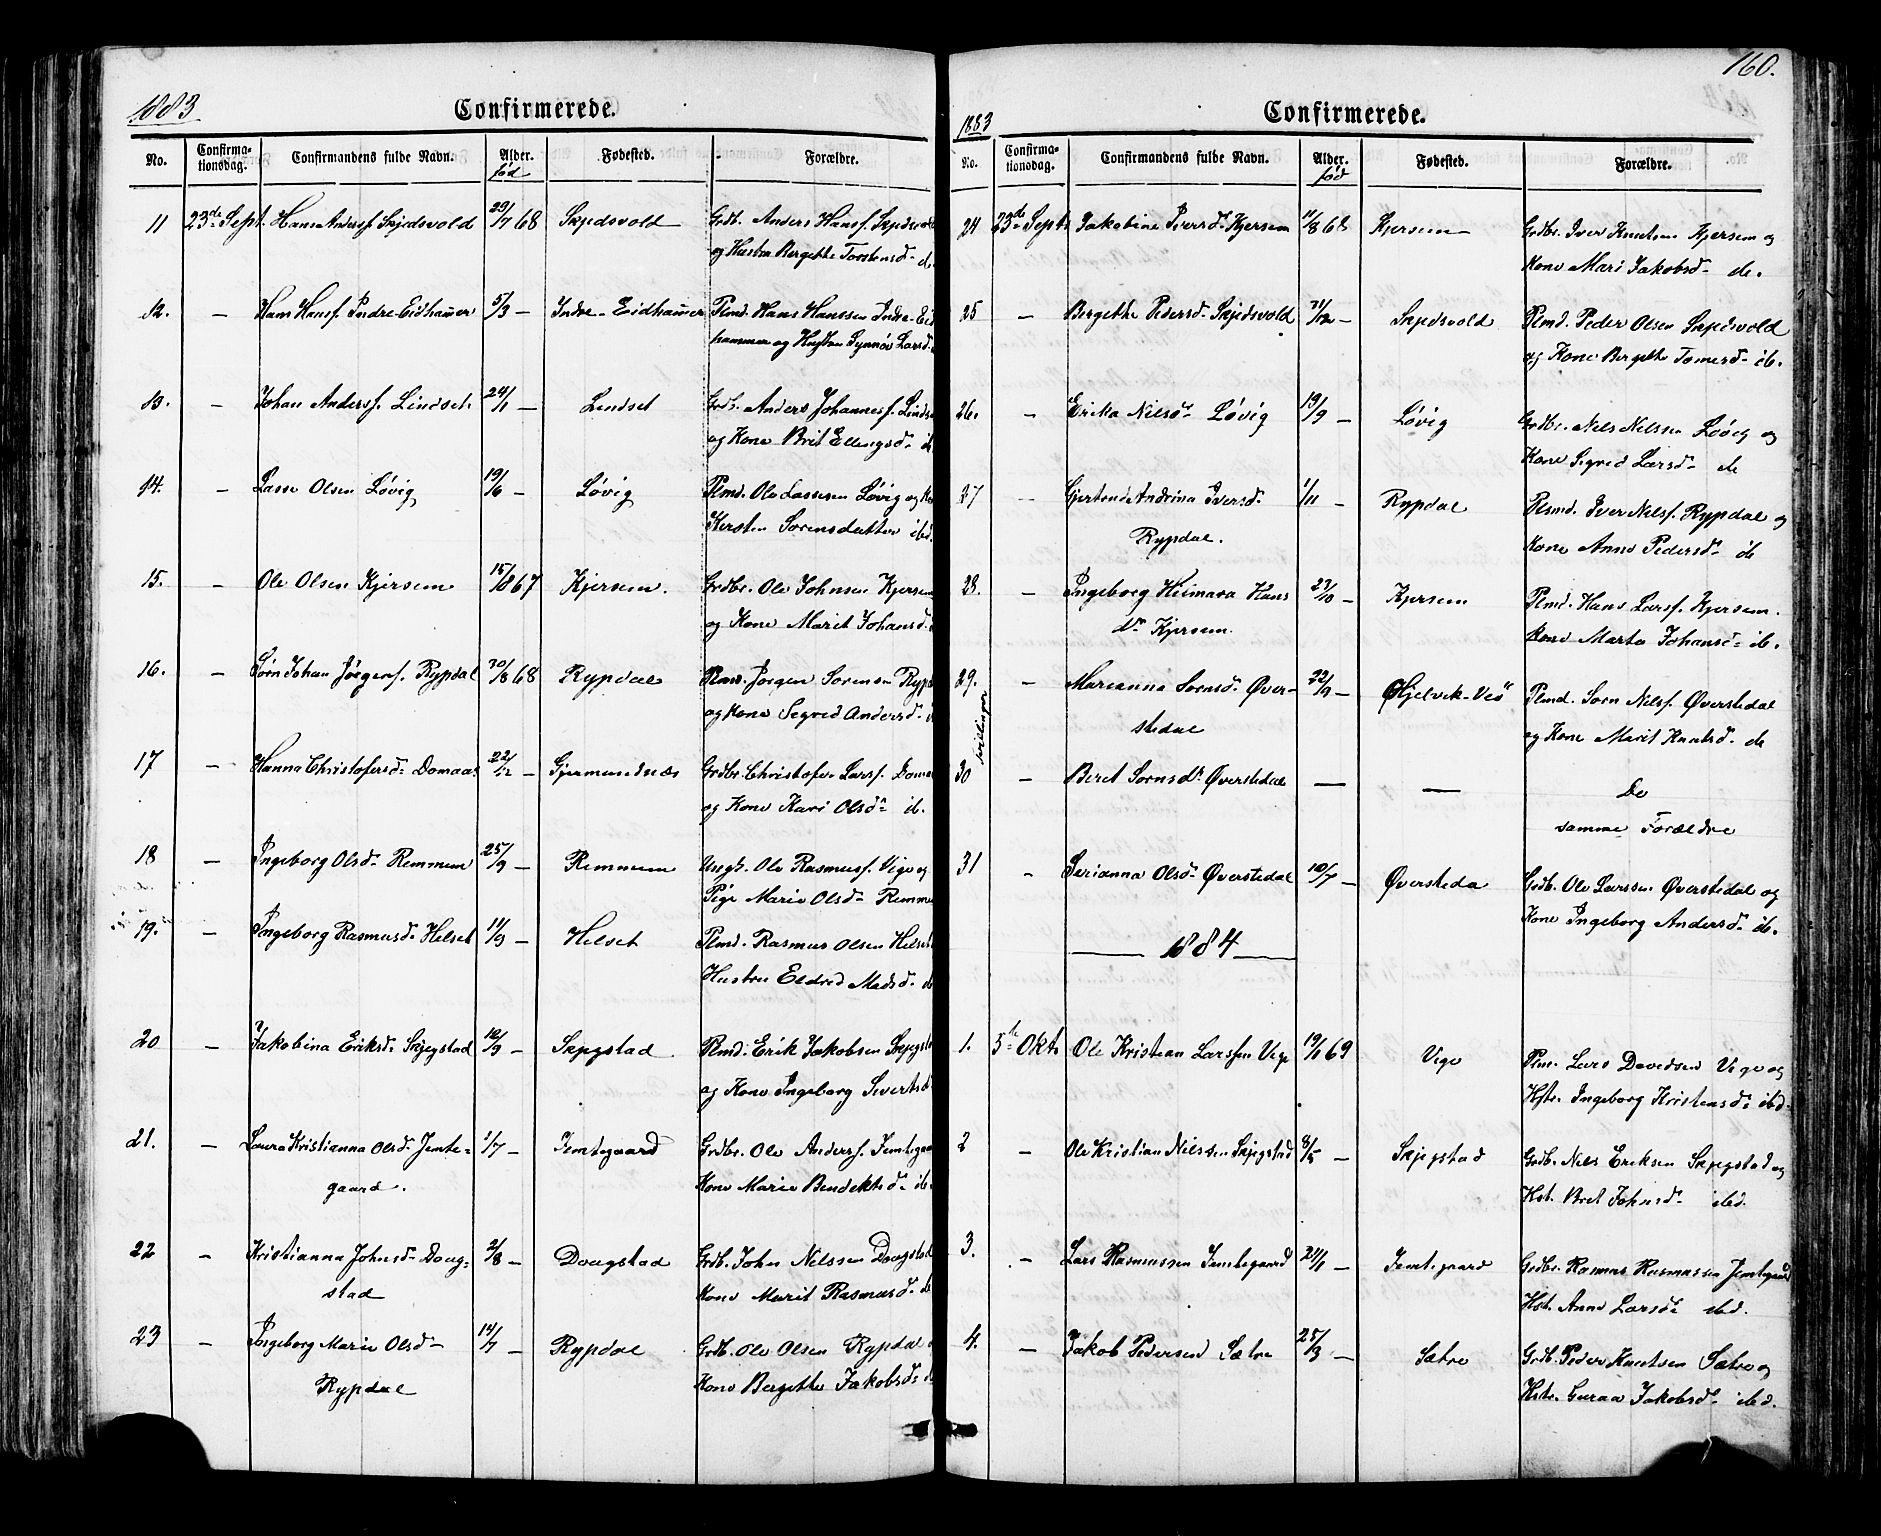 1883
Confirmerede.
No. Confirma-tionsdag. Confirmandens fulde Navn. Alder. Fødested. Forældre.
fød
11 23de Sept. Hans Anderss. Skjedsvold 29/7 68 Skjedsvold Grdb. Anders Hanss. Skjedsvold
og Hustru Bergethe Torstensd.
12. – Hans Hanss. Indre-Eidhammer 5/3 – Indre-Eidhammer Plmd. Hans Hanssen Indre-Eid
hammer og Hustru Synnøv Larsd.
13. – Johan Anderss. Lindset. 24/1 – Lindset Grdb. Anders Johanness. Linds
og Kone Brit Ellingsd.
14. – Lasse Olsen Løvig 19/6 – Løvig Plmd. Ole Lassesen Løvig og
Kersten Sørensdatter ibd.
15. – Ole Olsen Kjersem 15/8 67 Kjersem. Grdbr. Ole Johnsen Kjersem
og Kone Marit Johansd.
16. – Sørn Johan Jørgens. Rypdal 30/8 68 Rypdal Plmd. Jørgen Sørensen Rypd
og Kone Segred Andersd.
17 – Hanna Christofersd. Domaas 22/12 – Gjermundnæs Grdbr. Christofer Larss. Doma
og Kone Kari Olsd. ib.
18 – Ingeborg Olsd. Remmem 25/9 – Remmem Ungk. Ole Rasmuss. Vige og
Pige Marie Olsd. Remme
19. – Ingeborg Rasmusd. Helset 11/9 – Helset Plmd. Rasmus Olsen Helset
Hustru Eldred Madsd.
20 – Jakobina Eriksd. Skjegstad 12/9 – Skjegstad Plmd. Erik Jakobsen Skjegst
og Kone Ingeborg Sivertsd
21. – Laura Kristianna Olsd. Jemte- 1/7 – Jemtegaard Grdbr. Ole Anderss. Jemtegaa
gaard. Kone Marie Bendektsd. ib.
22 – Kristianna Johnsd. Daug- 2/8 – Daugstad Grdb. John Nilssen Daugstad
stad Kone Marit Rasmusd.
23 – Ingeborg Marie Olsd. 14/7 – Rypdal Grdb. Ole Olsen Rypdal
Rypdal Kone Bergethe Jakobsd.
160.
1883
Confirmerede.
No. Confirma-tionsdag. Confirmandens fulde Navn. Alder. Fødested. Forældre.
fød
24 23de Sept. Jakobine Iversd. Kjersem 11/8 68 Kjersem Grdbr. Iver Knutsen Kjersem og
Kone Mari Jakobsd. ib.
25 – Bergethe Pedersd. Skjedsvold 31/12 – Skjedsvold Plmd. Peder Olsen Skjedsvold
og Kone Bergethe Tomesd. ib.
26. – Erika Nilsd. Løvig 19/9 – Løvig Grdbr. Nels Nilsen Løvig og
Kone Segred Larsd. ib
27 – Gjertrude Andrina Iversd. 1/11 – Rypdal Plmd. Iver Nils. Rypdal og
Rypdal. Kone Anne Pedersd. ib
28. – Ingeborg Heimara Hans 23/10 – Kjersem Plmd. Hans Larss. Kjersem.
d. Kjersem. Kone Marta Johansd. ib.
29. – Marianna Sørnsd. Øver- 22/9 – Hjelvik-Veø Plmd. Sørn Nilss. Øverstedal
stedal og Kone Marit Knutsd. ib
Tvillinger
30 – Beret Sørnsd. Øverstedal – – De
samme Forældre
31 – Serianna Olsd. Øverstedal 10/7 – Øversteda Grdb. Ole Larssen Øverstedal og
Kone Ingeborg Andersd. ib.
1884
1. 5te Okt. Ole Kristian Larssen Vige 19/1 69 Vige Plm. Lars Davidsen Vige og
Hstr. Ingeborg Kristensd. ibd.
2 – Ole Kristian Nilssen Skjegstad 8/5 – Skjegstad Grdb. Nils Eriksen Skjegstad og
Hst. Bret Johnsd. ibd.
3. – Lars Rasmussen Jemtegaard 21/1 – Jemtegaard Grdbr. Rasmus Rasmussen Jemtegaard
Hst. Anne Larsd. ibd.
4. – Jakob Pedersen Sætre 25/3 – Sætre Grdb. Peder Knutsen Sætre og
Hstr. Guraa Jakobsd. ibd.